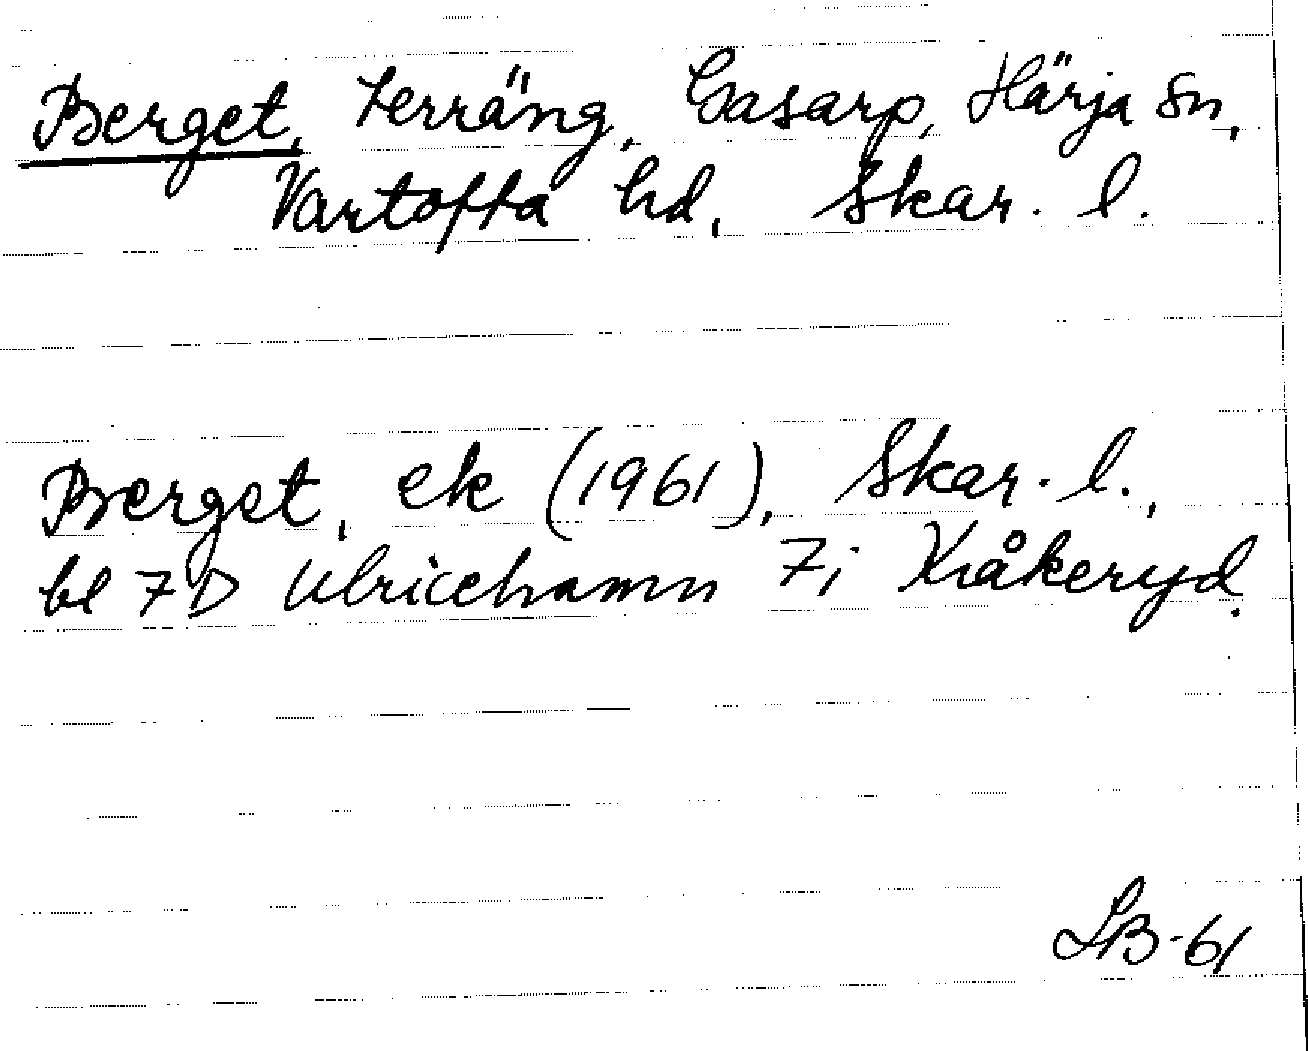 Berget, terräng, Gasarp, Härja sn,
Vartofta hd, Skar. l.
Berget, ek (1961), Skar. l.,
bl 7D Ulricehamn 7i Kråkeryd.
LB-61